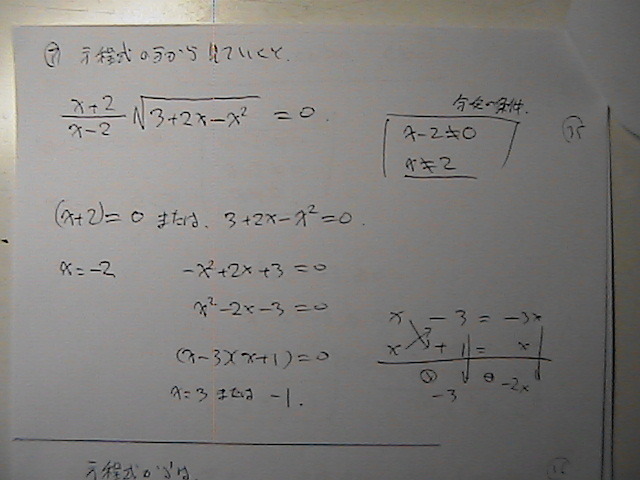 方程式の方から見ていくと、
x+2/x-2 √3+2x-x² = 0.
分母の条件.
x-2≠0
x≠2
15
(x+2)=0 または、3+2x-x²=0.
x=-2
-x²+2x+3=0
x²-2x-3=0
(x-3)(x+1)=0
x=3 または -1.
x - 3 = -3x
x + 1 = x
-3 -2x
方程式の